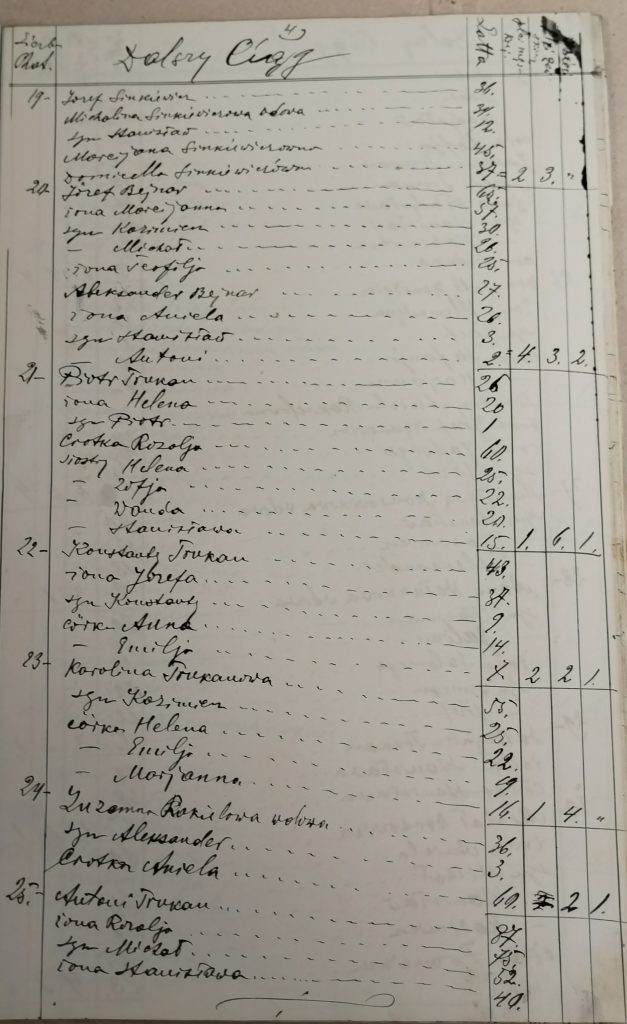 4)
Liczb. Chat. Dalszy Ciąg Latta
19- Józef Sinkiewicz 36.
Michalina Sinkiewiczowa wdowa 34.
syn Stanisław 12.
Marcijana Sinkiewiczowna 45.
Domicella Sinkiewiczówna 37= 2 3. "
20- Józef Bejnar 62.
żona Marcijanna 57.
syn Kazimierz 30.
— Michał 26.
żona Teofilja 25.
Aleksander Bejnar 27.
żona Aniela 26.
syn Stanisław 3.
Antoni 2= 4. 3. 2.
21- Piotr Trukan 26
żona Helena 20
syn Piotr 1
Ciotka Rozalja 60.
siostry Helena 25.
— Zofja 22.
— Wanda 20.
— Stanisława 15. 1. 6. 1.
22- Konstanty Trukan 43.
żona Józefa 37.
syn Konstanty 9.
córka Anna 14.
— Emilja 7. 2 2 1.
23- Karolina Trukanowa 55.
syn Kazimierz 25.
córka Helena 22.
— Emilja 19.
— Marjanna 16. 1 4. "
24- Zuzanna wdowa 36.
syn Aleksander 3.
Ciotka Aniela 60. 2 1.
25.- Antoni Trukan 87.
żona Rozalja 75.
syn Michał 52.
żona Stanisława 40.